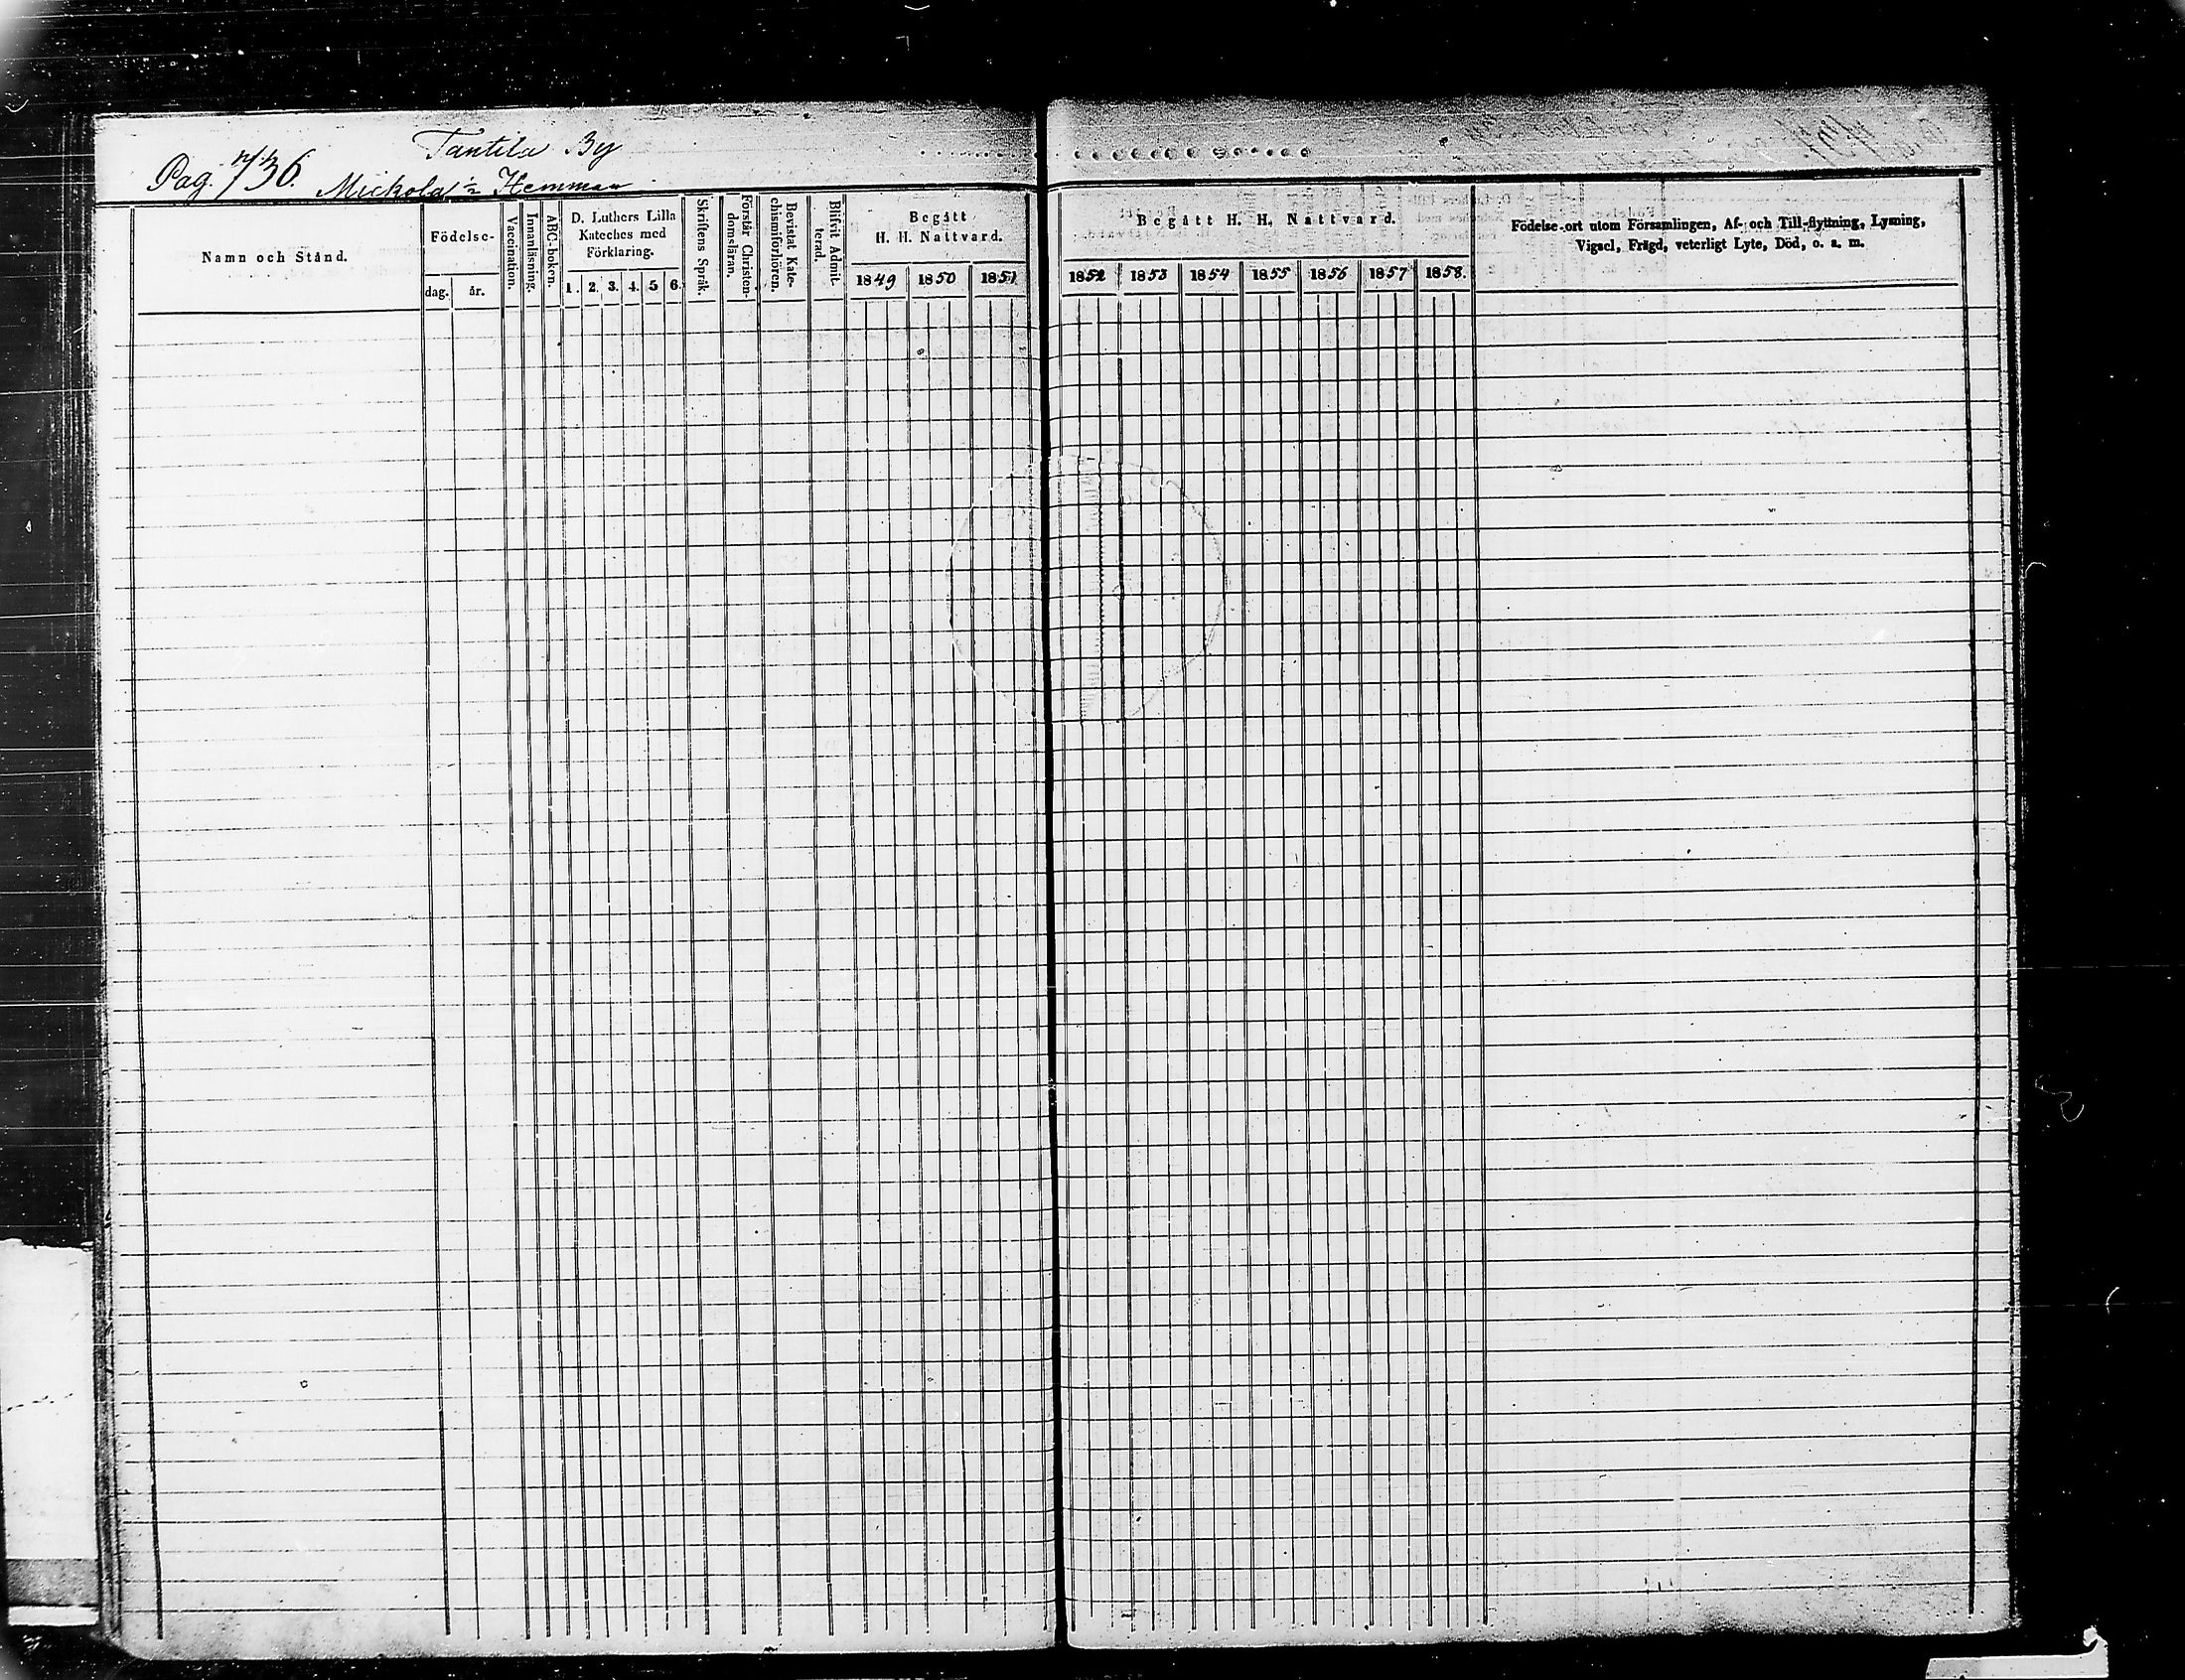 Tantila By
Pag. 736. Mickola ½ Hemman
Namn och Stånd.
Födelse-
dag.
år.
Vaccination.
Innanläsning.
ABC-boken.
D. Luthers Lilla
Kateches med
Förklaring.
1. 2. 3. 4. 5 6.
Skriftens Språk.
Förstår Christen-
domsläran.
Bevistat Kate-
chismiförhören.
Blifvit Admit-
terad.
Begått
H. H. Nattvard.
1849 1850 1851
Begått H. H. Nattvard.
1852 1853 1854 1855 1856 1857 1858.
Födelse-ort utom Församlingen, Af- och Till-flyttning, Lysning,
Vigsel, Frägd, veterligt Lyte, Död, o. s. m.